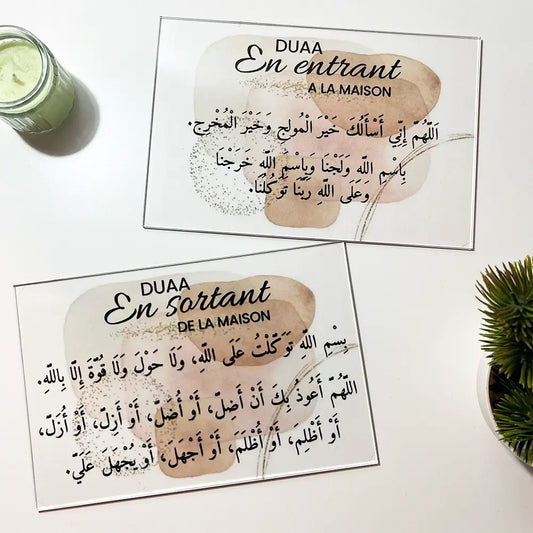 DUAA
En entrant
A LA MAISON
اَللّٰهُمَّ إِنِّي أَسْأَلُكَ خَيْرَ الْمُولَجِ وَخَيْرَ الْمُخْرَجِ.
بِاسْمِ اللهِ وَلَجْنَا وَبِاسْمِ اللهِ خَرَجْنَا
وَعَلَى اللهِ رَبِّنَا تَوَكَّلْنَا.
DUAA
En sortant
DE LA MAISON
بِسْمِ اللّٰهِ تَوَكَّلْتُ عَلَى اللّٰهِ، وَلَا حَوْلَ وَلَا قُوَّةَ إِلَّا بِاللّٰهِ.
اللّٰهُمَّ أَعُوذُ بِكَ أَنْ أَضِلَّ، أَوْ أُضَلَّ، أَوْ أَزِلَّ، أَوْ أُزَلَّ،
أَوْ أَظْلِمَ، أَوْ أُظْلَمَ، أَوْ أَجْهَلَ، أَوْ يُجْهَلَ عَلَيَّ.